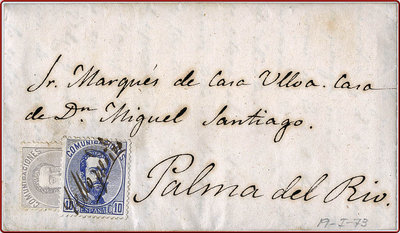 Sr. Marqués de Casa Ulloa. Casa
de Dn Miguel Santiago.
Palma del Rio.
COMUNICACIONES
COMUNICACIONES
10
ESPAÑA
10
19-I-73